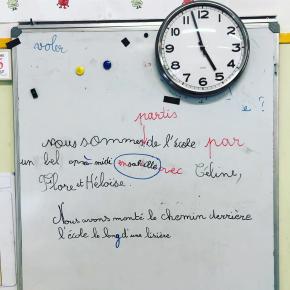 voler
partis
e ?
nous sommes de l'école par
un bel après midi ensoleillé avec Céline,
Flore et Héloïse.
Nous avons monté le chemin derrière
l'école le long d'une lisière